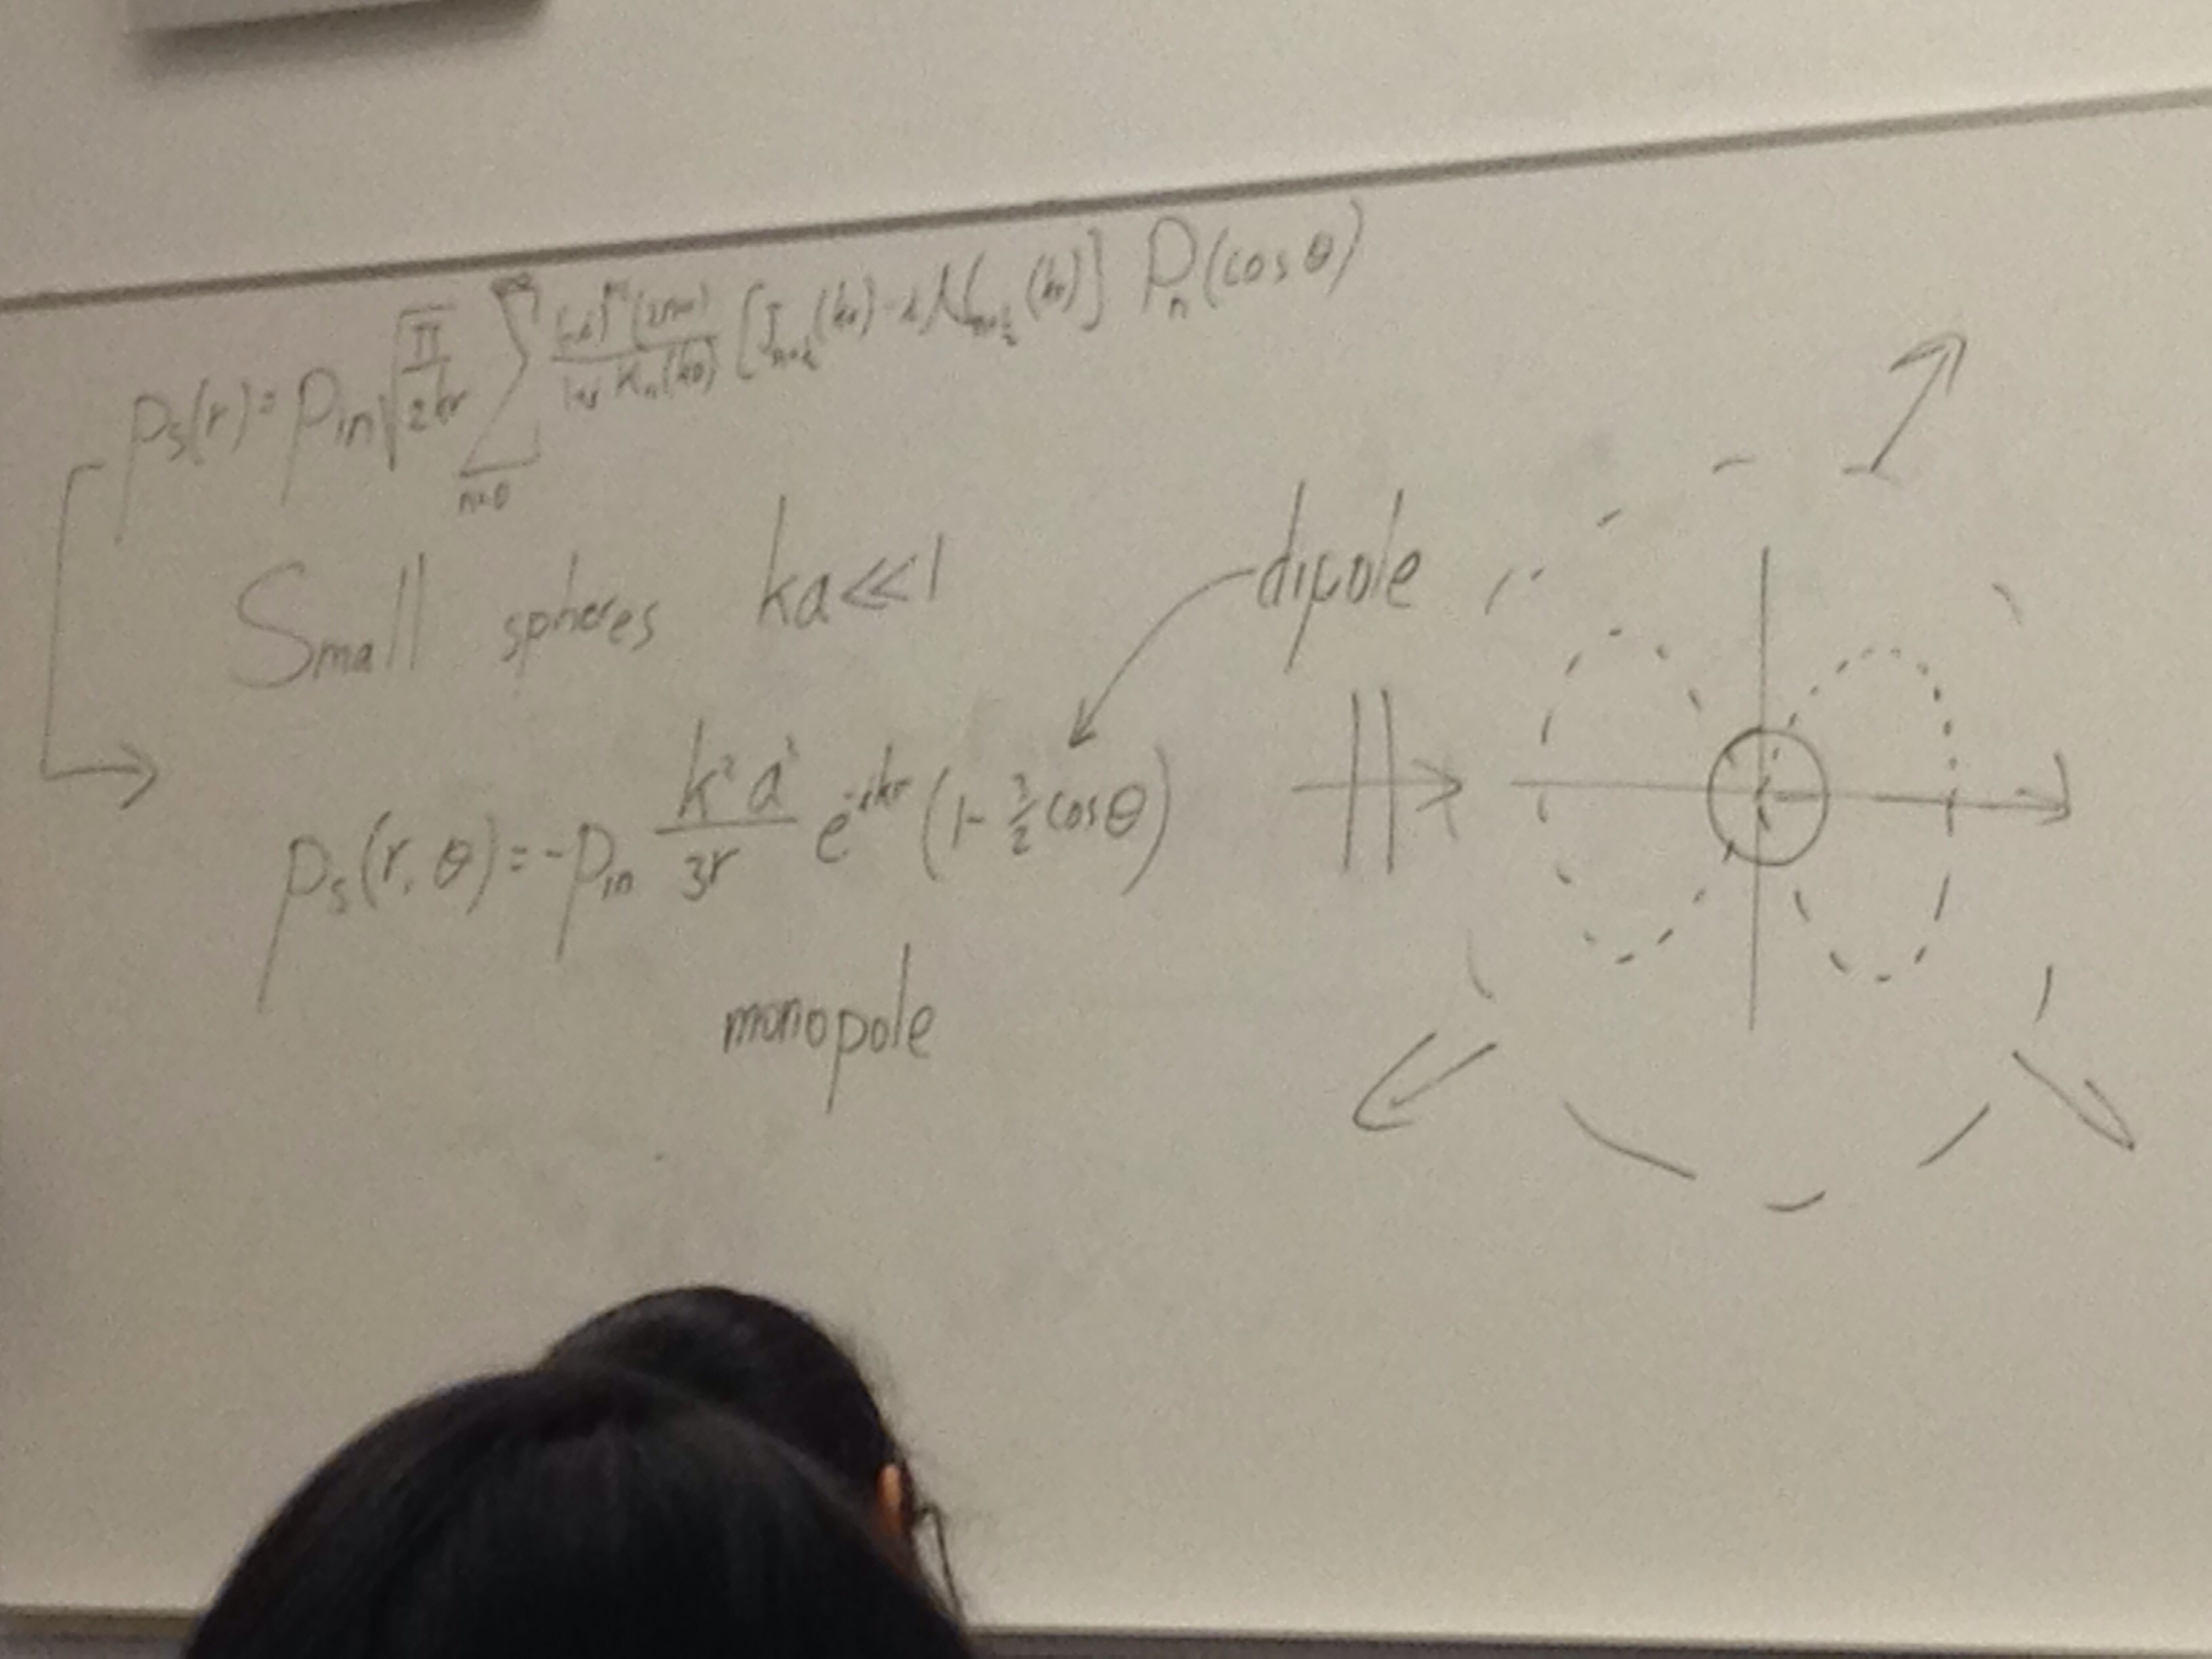 pₛ(r) = p_in √(π/2kr) Σ_{n=0}^{∞} (-i)ⁿ(2n+1) / Kₙ(ka) [J_{n+½}(kr) - i N_{n+½}(kr)] Pₙ(cos θ)
Small spheres ka << 1
dipole
pₛ(r, θ) = -p_in k²a³/3r e^{-ikr} (1 - 3/2 cos θ)
monopole